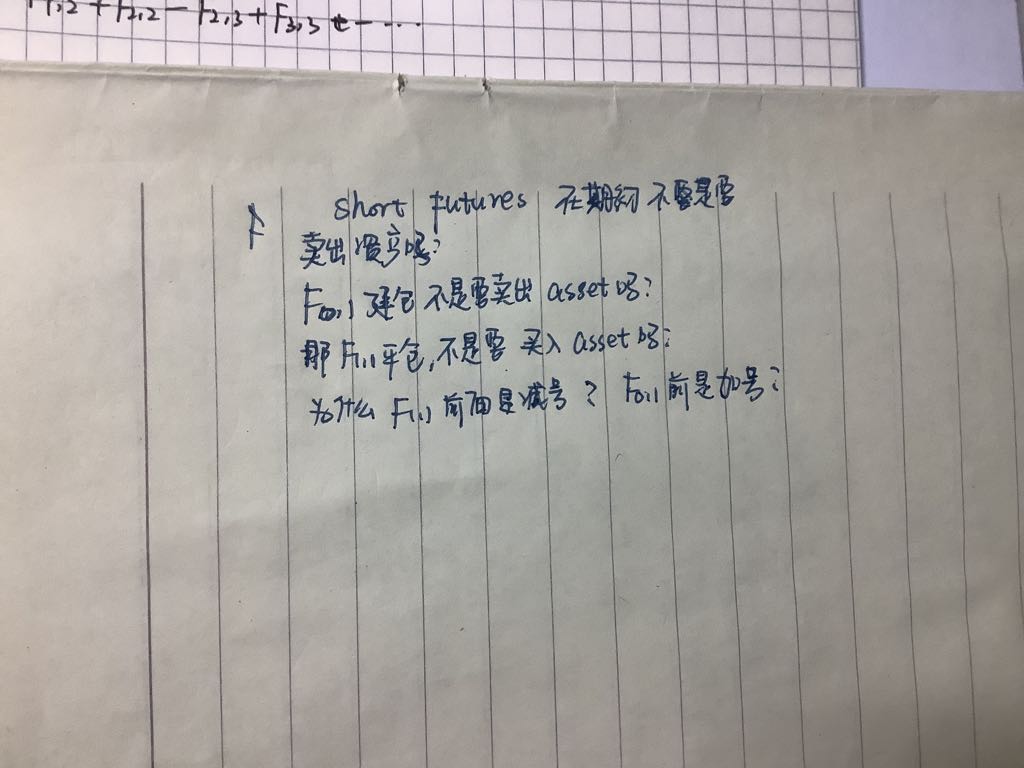 F1,2 + F2,2 - F2,3 + F3,3 t - ...
short futures 在期初不要是要
卖出资产吗?
F0,1 建仓不是要卖出 asset吗?
那 F1,1 平仓,不是要 买入 asset吗?
为什么 F1,1 前面是减号? F0,1 前是加号?